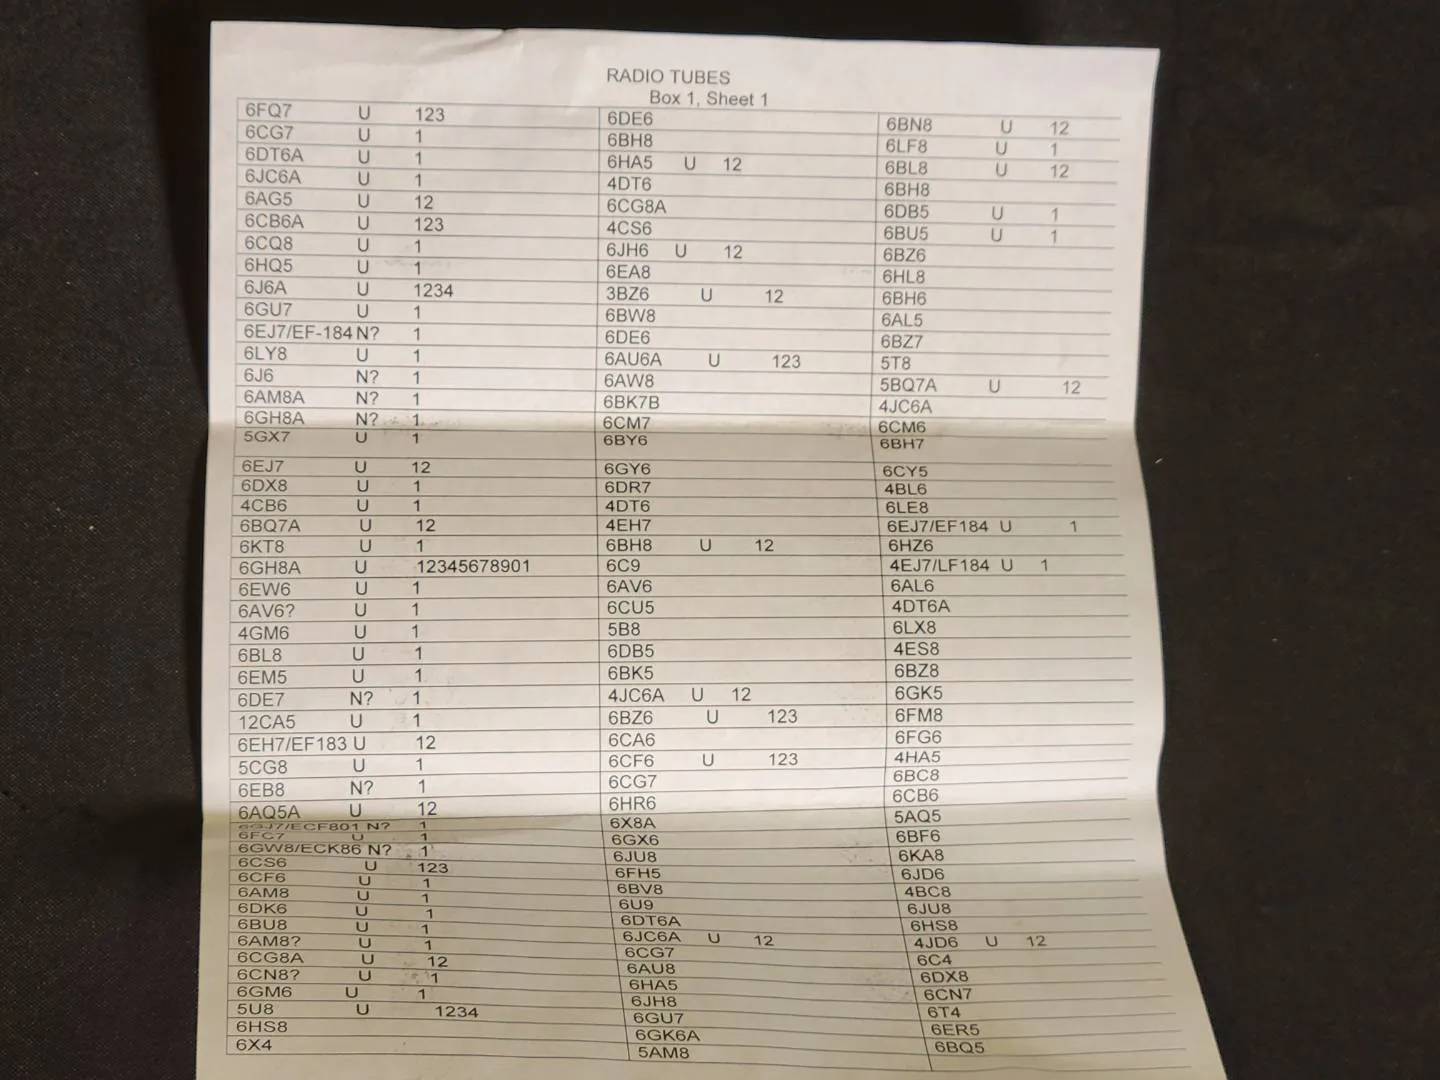 RADIO TUBES
Box 1, Sheet 1
6FQ7 U 123
6CG7 U 1
6DT6A U 1
6JC6A U 1
6AG5 U 12
6CB6A U 123
6CQ8 U 1
6HQ5 U 1
6J6A U 1234
6GU7 U 1
6EJ7/EF-184 N? 1
6LY8 U 1
6J6 N? 1
6AM8A N? 1
6GH8A N? 1
5GX7 U 1
6EJ7 U 12
6DX8 U 1
4CB6 U 1
6BQ7A U 12
6KT8 U 1
6GH8A U 12345678901
6EW6 U 1
6AV6? U 1
4GM6 U 1
6BL8 U 1
6EM5 U 1
6DE7 N? 1
12CA5 U 1
6EH7/EF183 U 12
5CG8 U 1
6EB8 N? 1
6AQ5A U 12
6GJ7/ECF801 N? 1
6FC7 U 1
6GW8/ECK86 N? 1
6CS6 U 123
6CF6 U 1
6AM8 U 1
6DK6 U 1
6BU8 U 1
6AM8? U 1
6CG8A U 12
6CN8? U 1
6GM6 U 1
5U8 U 1234
6HS8
6X4
6DE6
6BH8
6HA5 U 12
4DT6
6CG8A
4CS6
6JH6 U 12
6EA8
3BZ6 U 12
6BW8
6DE6
6AU6A U 123
6AW8
6BK7B
6CM7
6BY6
6GY6
6DR7
4DT6
4EH7
6BH8 U 12
6C9
6AV6
6CU5
5B8
6DB5
6BK5
4JC6A U 12
6BZ6 U 123
6CA6
6CF6 U 123
6CG7
6HR6
6X8A
6GX6
6JU8
6FH5
6BV8
6U9
6DT6A
6JC6A U 12
6CG7
6AU8
6HA5
6JH8
6GU7
6GK6A
5AM8
6BN8 U 12
6LF8 U 1
6BL8 U 12
6BH8
6DB5 U 1
6BU5 U 1
6BZ6
6HL8
6BH6
6AL5
6BZ7
5T8
5BQ7A U 12
4JC6A
6CM6
6BH7
6CY5
4BL6
6LE8
6EJ7/EF184 U 1
6HZ6
4EJ7/LF184 U 1
6AL6
4DT6A
6LX8
4ES8
6BZ8
6GK5
6FM8
6FG6
4HA5
6BC8
6CB6
5AQ5
6BF6
6KA8
6JD6
4BC8
6JU8
6HS8
4JD6 U 12
6C4
6DX8
6CN7
6T4
6ER5
6BQ5